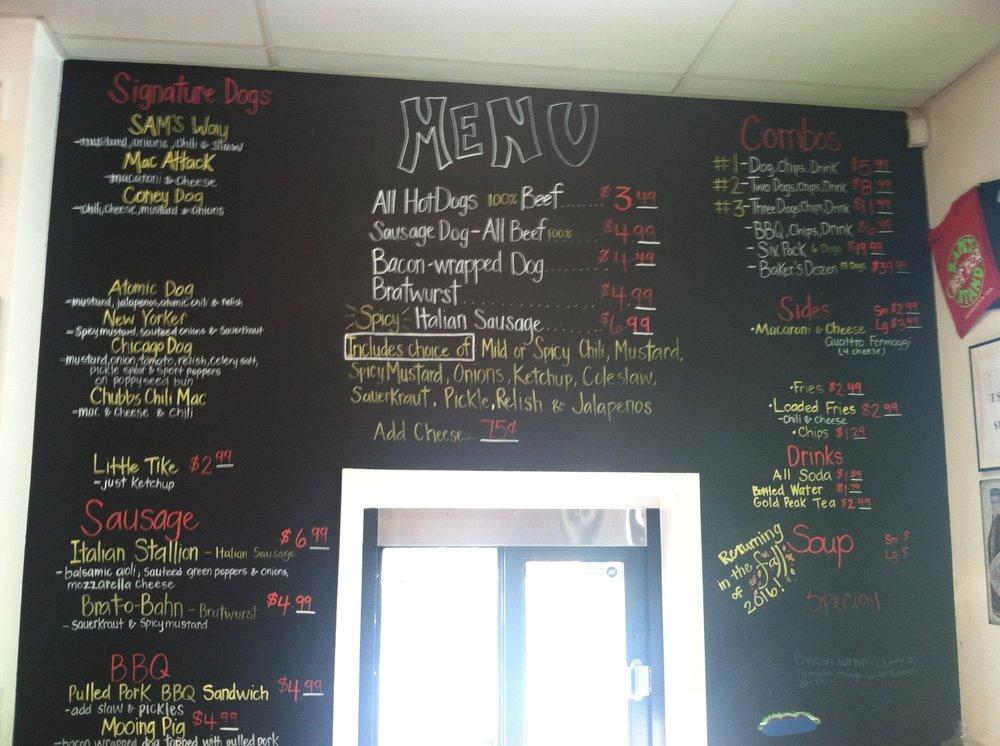 Signature Dogs
SAM's Way
-mustard, onions, chili & slaw
Mac Attack
-macaroni & cheese
Coney Dog
-chili, cheese, mustard & onions
Atomic Dog
-mustard, jalapenos, atomic chili & relish
New Yorker
-spicy mustard, sauteed onions & sauerkraut
Chicago Dog
-mustard, onion, tomato, relish, celery salt,
pickle spear & sport peppers
on poppyseed bun
Chubbs Chili Mac
-mac & cheese & chili
Little Tike $2.99
-just ketchup
Sausage
Italian Stallion - Italian Sausage $6.99
-balsamic aioli, sauteed green peppers & onions,
mozzarella cheese
Brat-o-Bahn - Bratwurst $4.99
- sauerkraut & spicy mustard
BBQ
Pulled Pork BBQ Sandwich $4.99
-add slaw & pickles
Mooing Pig $4.99
-bacon wrapped dog topped with pulled pork
MENU
All HotDogs 100% Beef........ $3.49
Sausage Dog-All Beef 100% ..... $4.99
Bacon-wrapped Dog.......... $4.49
Bratwurst................ $4.99
Spicy Italian Sausage....... $6.99
Includes choice of Mild or Spicy Chili, Mustard,
Spicy Mustard, Onions, Ketchup, Coleslaw,
Sauerkraut, Pickle, Relish & Jalapenos
Add Cheese..... 75¢
Combos
#1-Dog, Chips, Drink $5.99
#2-Two Dogs, Chips, Drink $8.99
#3-Three Dogs, Chips, Drink $11.99
-BBQ, Chips, Drink $6.99
- Six Pack 6 Dogs $19.99
- Baker's Dozen 13 Dogs $39.99
Sides
Sm $2.99
•Macaroni & Cheese Lg $3.99
Quattro Formaggi
(4 cheese)
•Fries $2.49
•Loaded Fries $2.99
-chili & cheese
•Chips $1.29
Drinks
All Soda
Bottled Water
Gold Peak Tea $2.49
Soup
Sm $
Lg $
Returning
in the fall
of
2016!
Special
Bacon wrap, lettuce,
tomato, mayo, with ranch
drizzle
SAM'S
HOT DOG
STAND